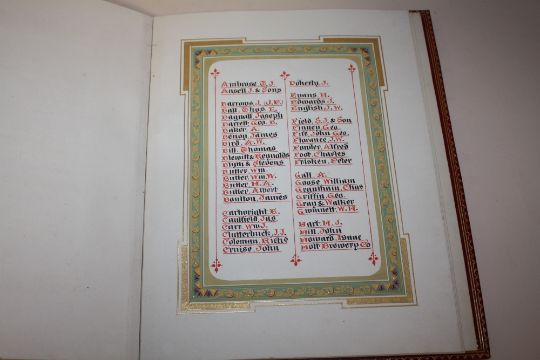 Ambrose T. J.
Ansell J. & Sons
Barrows J. & J. H.
Ball Thos E.
Bagnall Joseph
Barrett Geo. E.
Baker A.
Benon James
Bird A. W.
Bill Thomas
Blewitt & Reynolds
Blyth & Stevens
Butler Wm
Butler Wm. W.
Butler H. A.
Butler Albert
Boulton James
Cartwright E.
Caulfield Jas
Carr Wm J.
Clutterbuck J. J.
Coleman Richd
Cruise John
Doherty J.
Evans H.
Edwards J.
English J. W.
Field S. J. & Son
Finney Geo.
Fife John Geo.
Florance J. W.
Fonder Alfred
Foot Charles
Frisken Peter
Gall A.
Goose William
Grantham Chas
Griffin Geo.
Gray & Walker
Gwinnett W. H.
Hart M. J.
Hill John
Howard Isaac
Holt Brewery Co